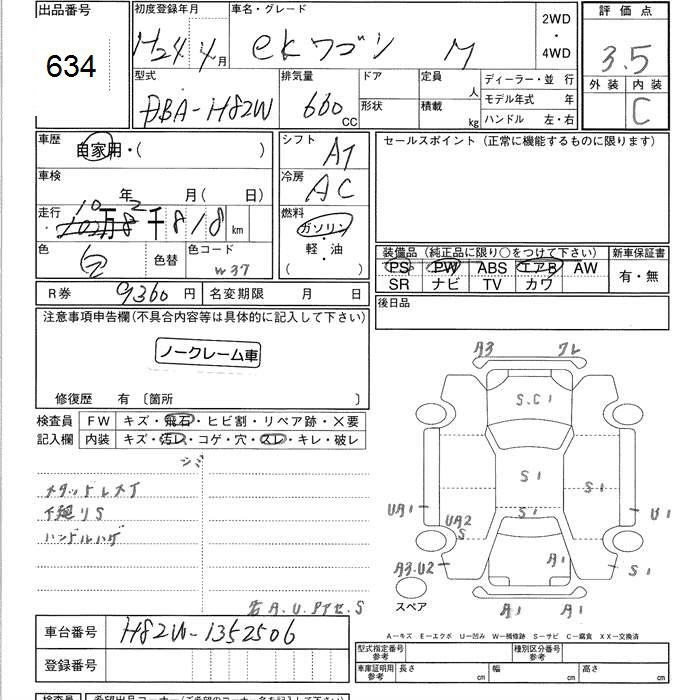 出品番号
634
初度登録年月
H24年4月
車名・グレード
ekワゴン M
2WD
・
4WD
評価点
3.5
外装 内装
C
型式
DBA-H82W
排気量
660 CC
ドア
形状
定員 人
積載 kg
ディーラー・並 行
モデル年式 年
ハンドル 左・右
車歴
自家用・( )
シフト
AT
セールスポイント(正常に機能するものに限ります)
車検
年 月( 日)
冷房
AC
走行
10万2千818km
燃料
ガソリン
・
軽・油
( )
色
白
色替
色コード
W37
装備品(純正品に限り○をつけて下さい)
PS PW ABS エアB AW
SR ナビ TV カワ
新車保証書
有・無
R券 9360円
名変期限 月 日
後日品
注意事項申告欄(不具合内容等は具体的に記入して下さい)
ノークレーム車
修復歴 有 〔箇所 〕
検査員
記入欄
FW キズ・飛石・ヒビ割・リペア跡・×要
内装 キズ・汚レ・コゲ・穴・スレ・キレ・破レ
シミ
スタットレスイ
下廻りS
ハンドルハゲ
A3 ワレ
S.C1
S1
S1
S1
UA1
UA2
S
U1
A3.U2
A1
S1
A1 A1
スペア
車台番号 H82W-1352506
登録番号
A-キズ E-エクボ U-凹み W-補修跡 S-サビ C-腐食 XX-交換済
型式指定番号
参考
種別区分番号
参考
車庫証明用
参考
長さ cm
幅 cm
高さ cm
検査員
希望出品コーナー(ご希望のコーナー名を記入下さい)